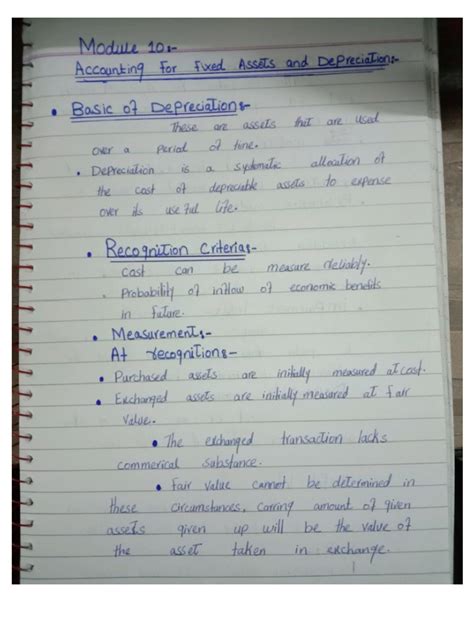 Module 10:-
Accounting For Fixed Assets and Depreciation:-
• Basic of Depreciation:-
These are assets that are used
over a Period of time.
• Depreciation is a systematic allocation of
the cost of depreciable assets to expense
over its useful life.
• Recognition Criteria:-
cost can be measure reliably.
• Probability of inflow of economic benefits
in future.
• Measurement:-
At recognition:-
• Purchased assets are initially measured at cost.
• Exchanged assets are initially measured at fair
value.
• The exchanged transaction lacks
commerical substance.
• Fair value cannot be determined in
these circumstances, carring amount of given
assets given up will be the value of
the asset taken in exchange.